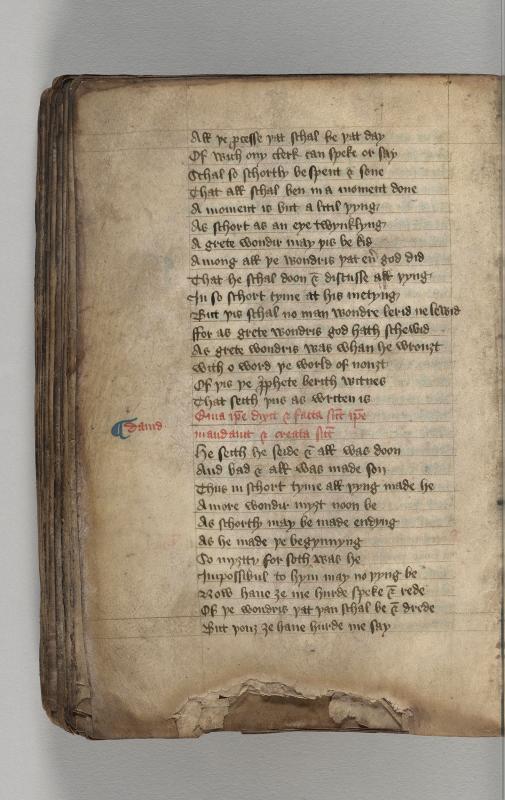 All þe ꝓcesse þat schal be þat day
Of wich ony clerk can speke or say
Schal so schortly be spent ⁊ sone
That all schal ben in a moment done
A moment is but a litil þyng
As schort as an eye twynklyng
A grete wondir may þis be kis
Among all þe wondris þat eũ god did
That he schal doon ⁊ discusse all þyng
In so schort tyme at his metyng
But þis schal no man wondre lerid ne lewid
ffor as grete wondris god hath schewid
As grete wondris was whan he wrouȝt
With o word þe world of nouȝt
Of þis þe ꝓphete berith witnes
That seith þus as writen is
Quia ip̃e dixit ⁊ facta sũt ip̃e
Dauid
mandauit ⁊ creata sũt
He seith he seide ⁊ all was doon
And bad ⁊ all was made son
Thus in schort tyme all þyng made he
A more wondir myȝt noon be
As schortly may be made endyng
As he made þe begynnyng
So myȝtty for soth was he
Impossibul to hym may no þyng be
Now haue ȝe me hurde speke ⁊ rede
Of þe wondris þat þan schal be ⁊ drede
But þouȝ ȝe haue hurde me say